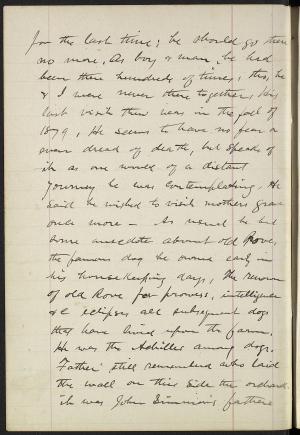 for the last time; he should go there
no more. As boy & man he had
been there hundreds of times; this, he
& I were never there together, his
last visit there was in the fall of
1879. He seems to have no fear or
even dread of death, but speaks of
it as one would of a distant
journey he was contemplating. He
said he wished to visit mother's grave
once more — As usual he had
some anecdote about old Rove,
the famous dog he owned early in
his housekeeping days. The renown
of old Rove for prowess, intelligence
&c eclipses all subsequent dogs
that have lived upon the farm.
He was the Achilles among dogs.
Father still remembered who laid
the wall on this side the orchard
it was John